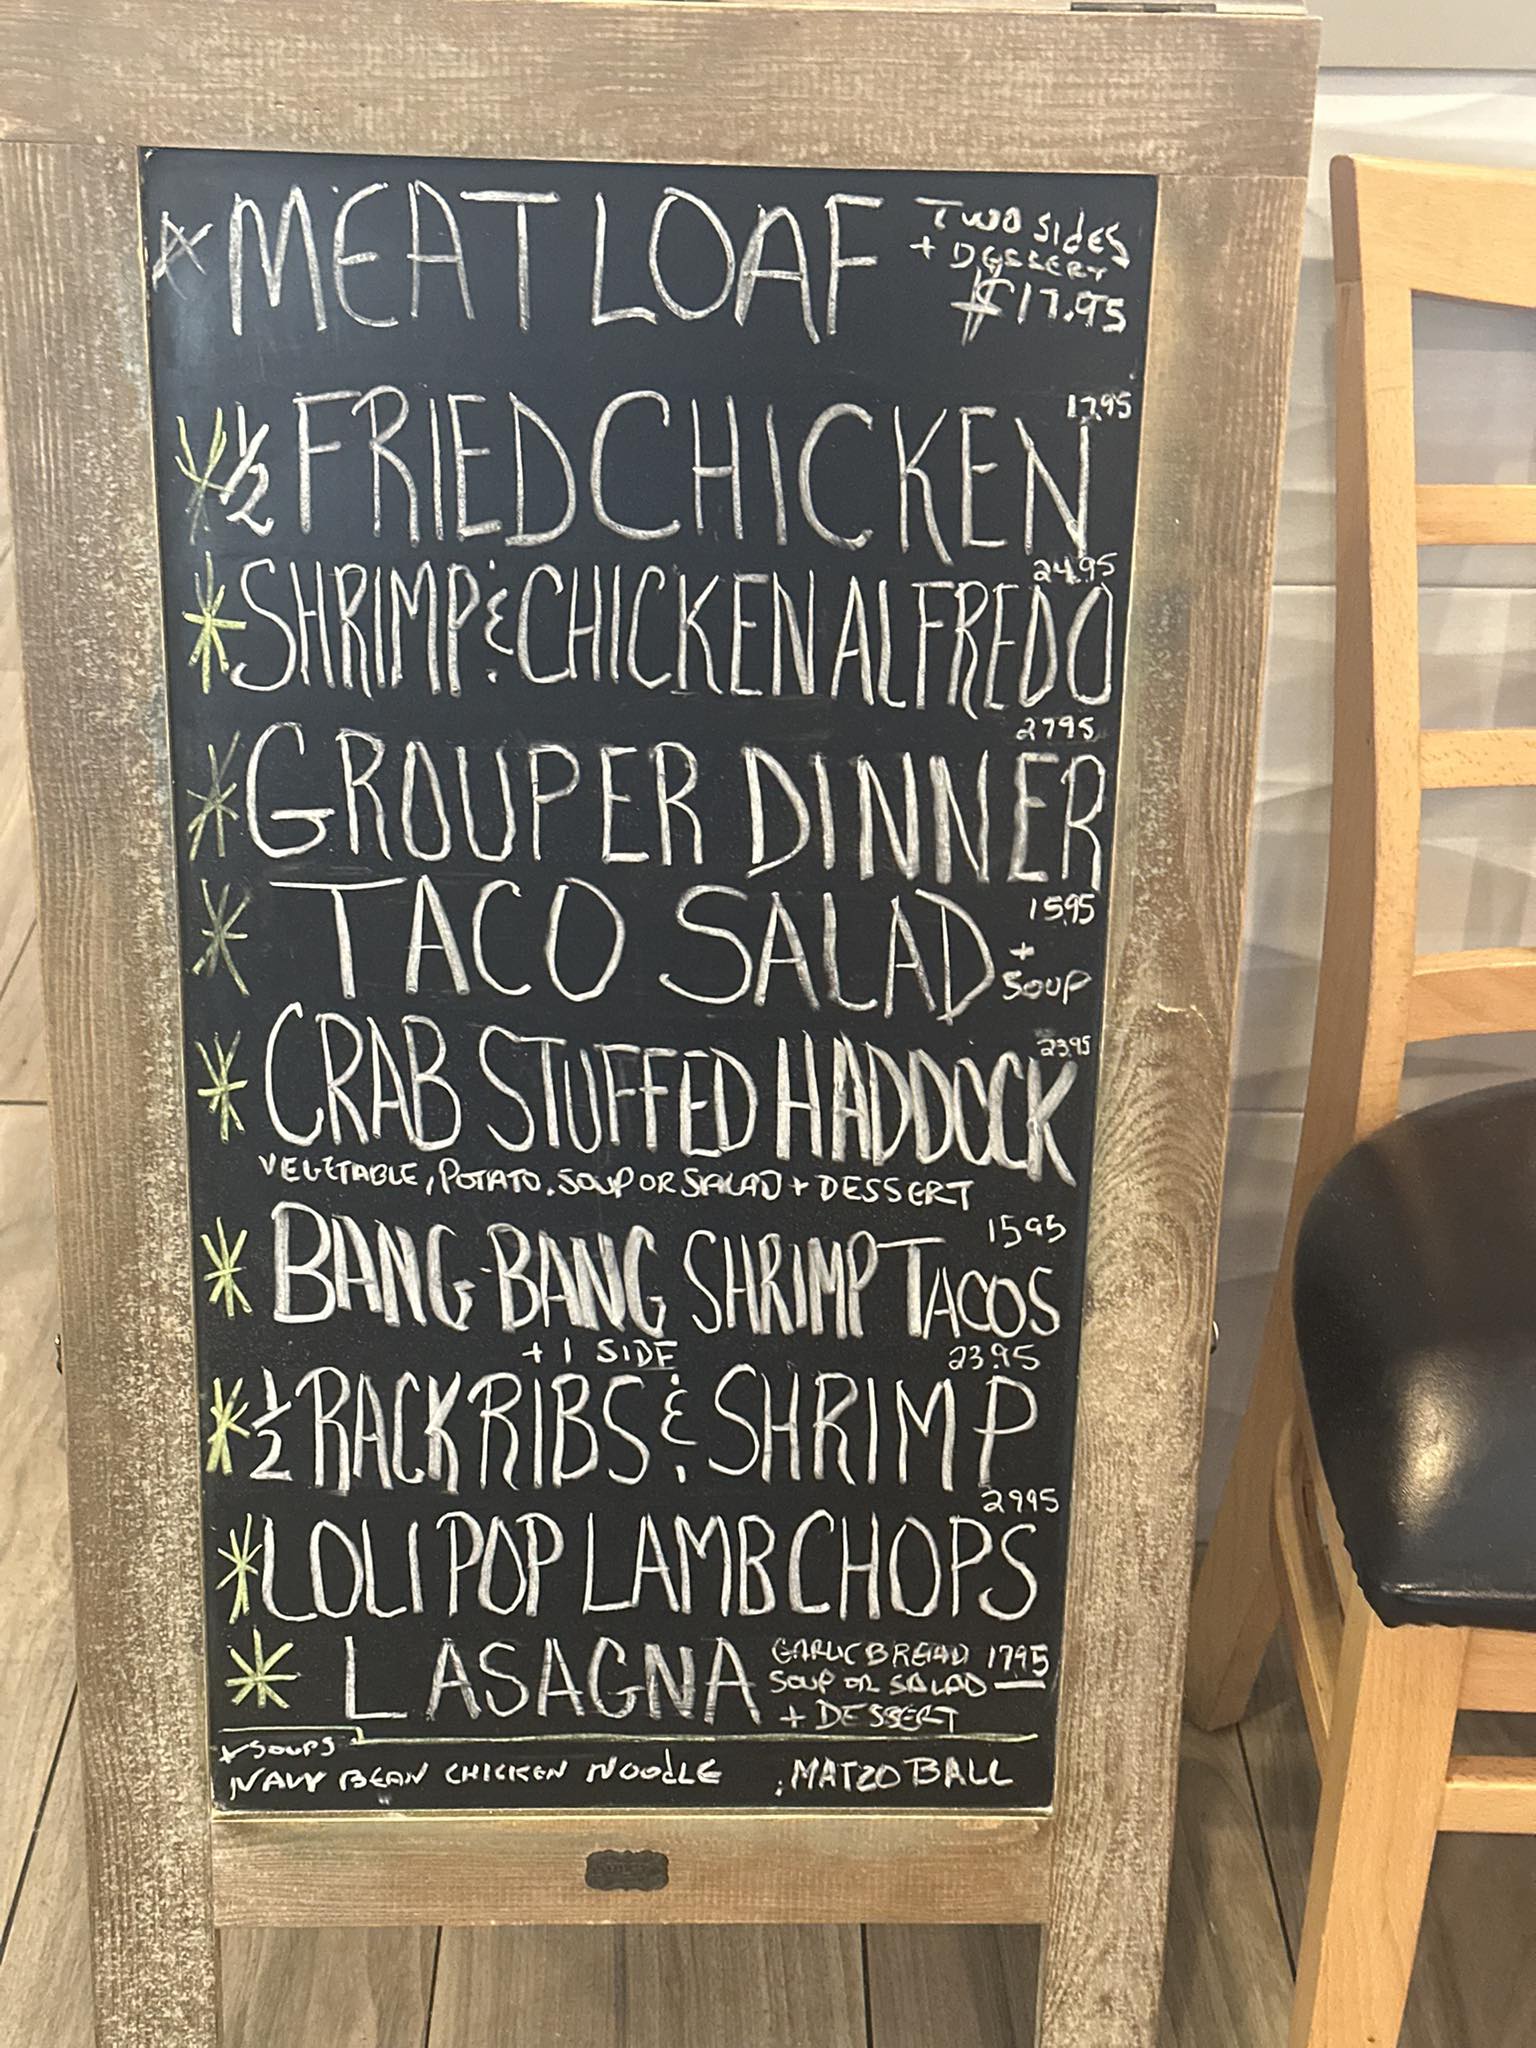 MEATLOAF TWO SIDES
+ DESSERT
$17.95
17.95
1/2 FRIED CHICKEN
24.95
SHRIMP & CHICKEN ALFREDO
2795
GROUPER DINNER
TACO SALAD 1595
+
SOUP
23.95
CRAB STUFFED HADDOCK
VEGETABLE, POTATO, SOUP OR SALAD + DESSERT
1595
BANG-BANG SHRIMP TACOS
+ 1 SIDE 23.95
1/2 RACK RIBS & SHRIMP
2995
LOLIPOP LAMB CHOPS
LASAGNA GARLIC BREAD 1795
SOUP OR SALAD
+ DESSERT
SOUPS
NAVY BEAN CHICKEN NOODLE , MATZO BALL